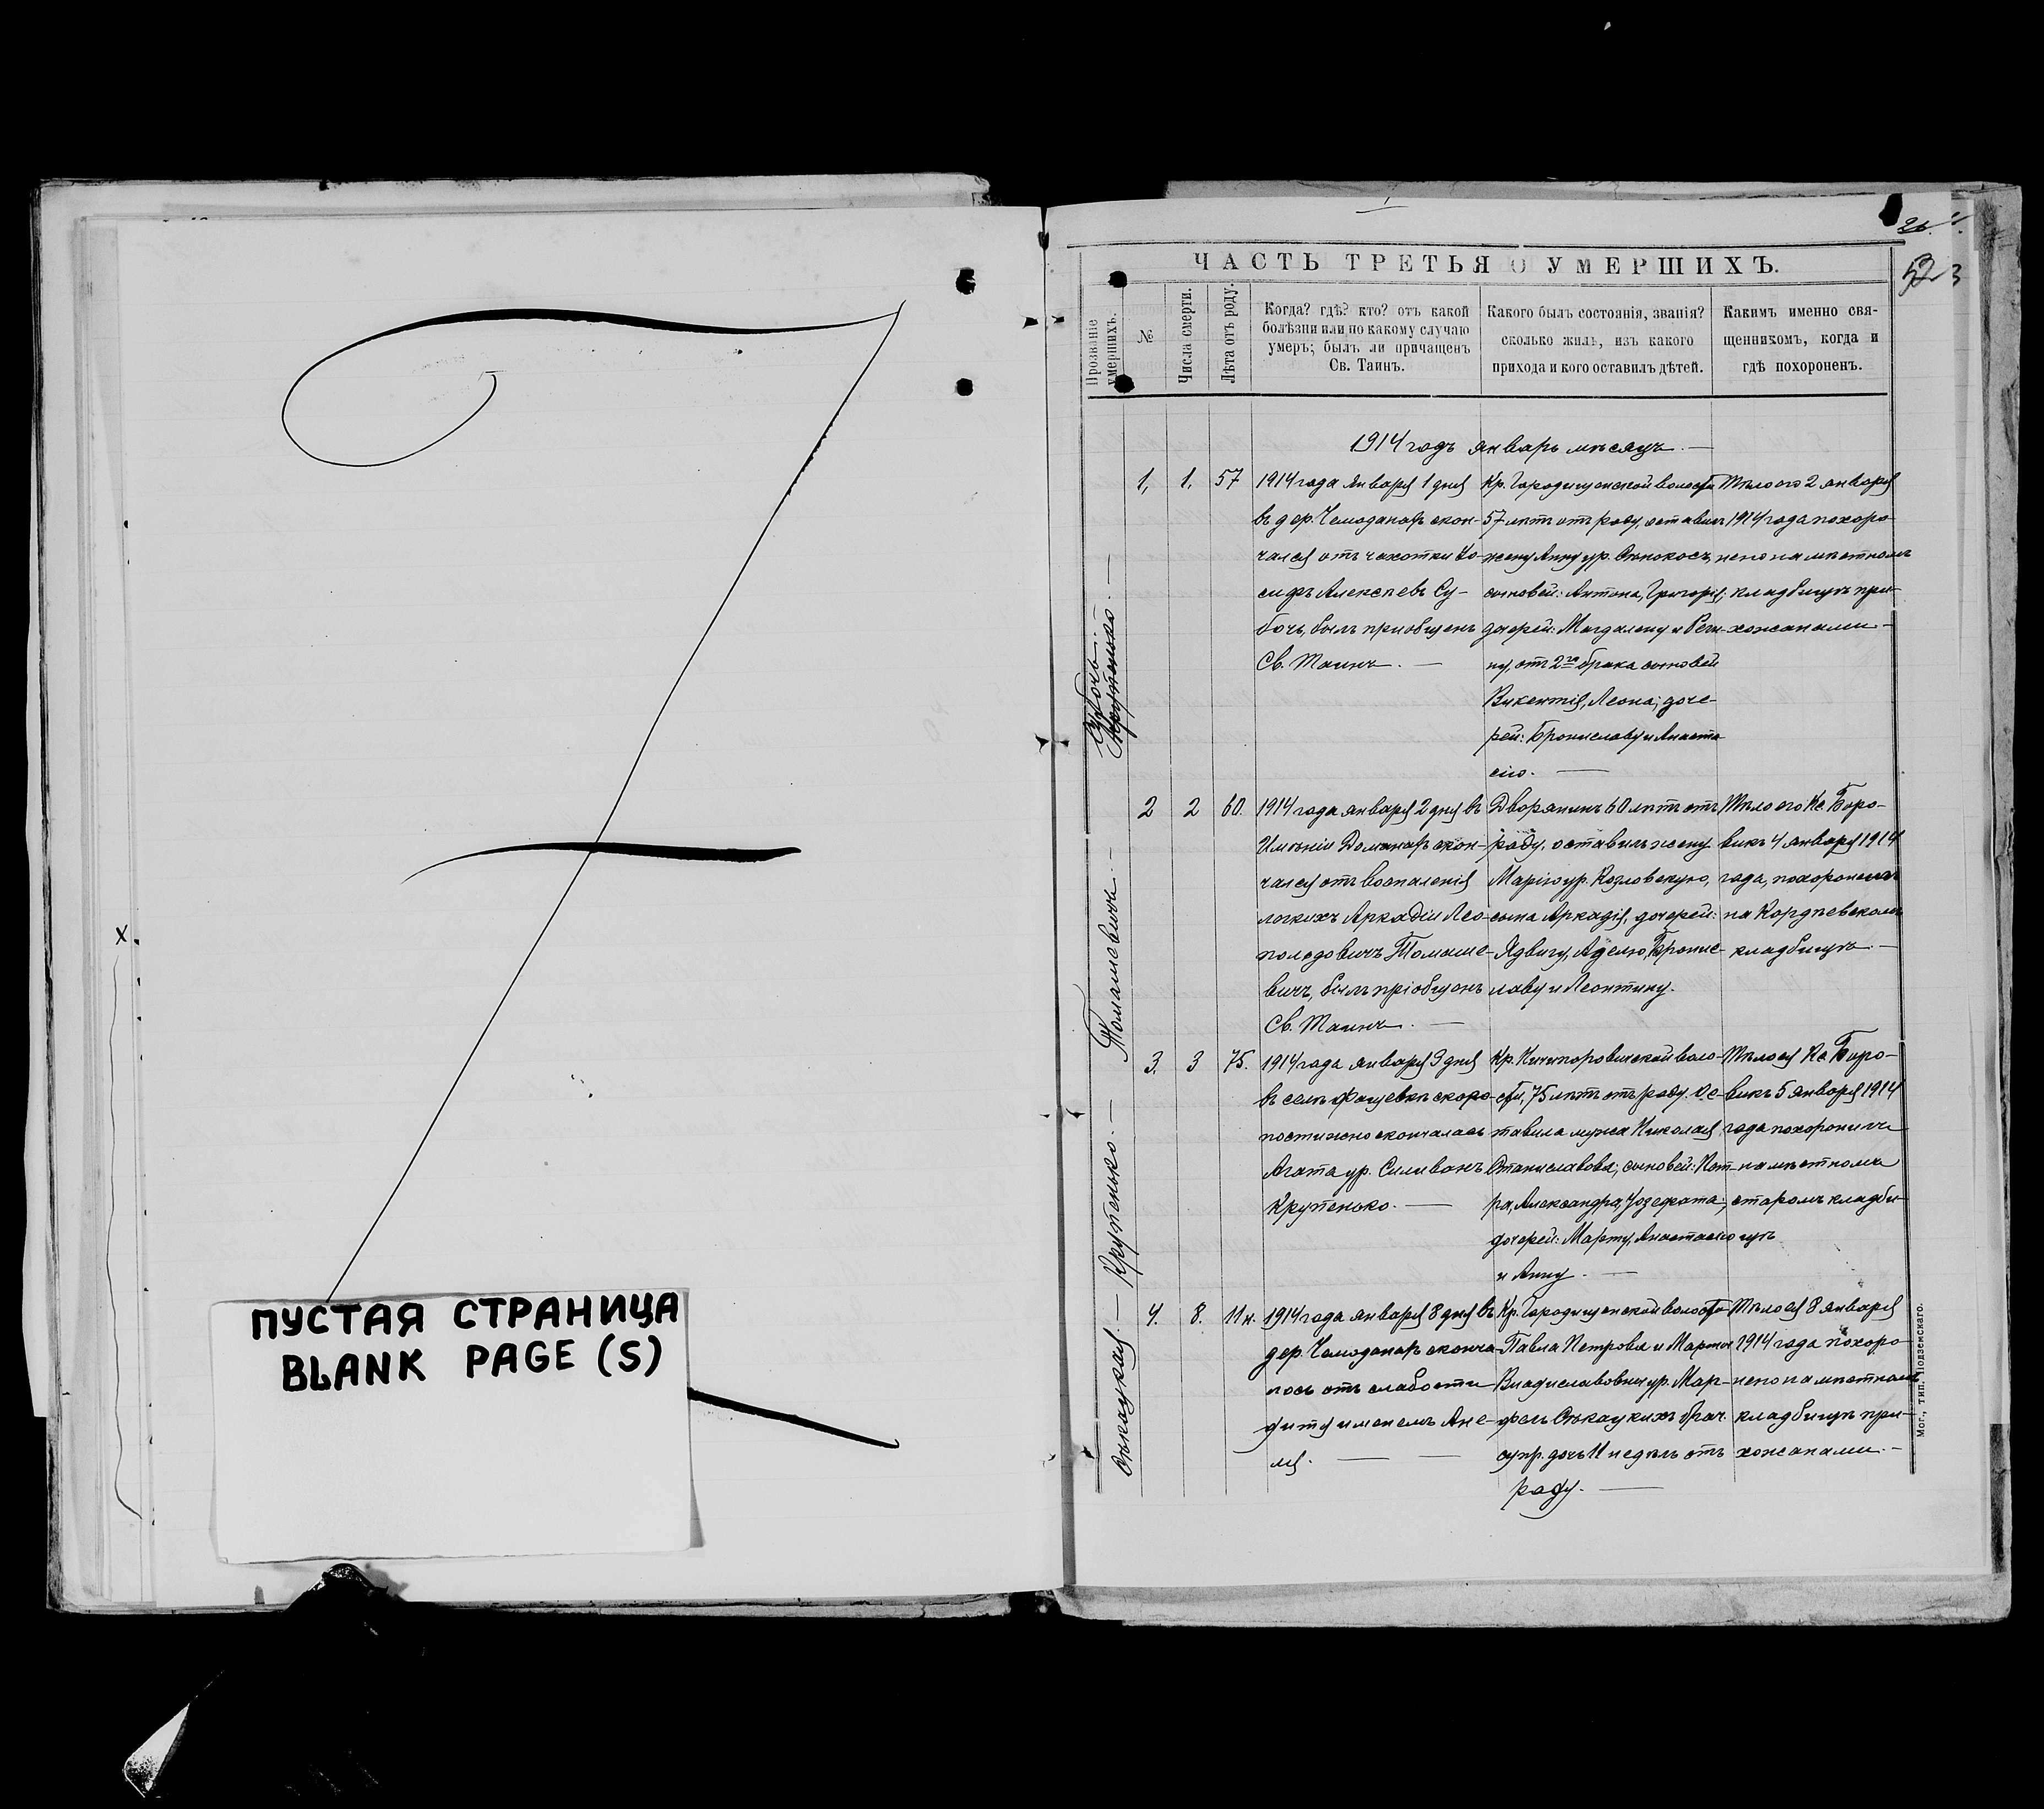 ПУСТАЯ СТРАНИЦА
BLANK PAGE (S)
х.
26.
52
3
ЧАСТЬ ТРЕТЬЯ О УМЕРШИХЪ.
Прозваніе умершихъ.
№
Числа смерти.
Лѣта отъ роду.
Когда? гдѣ? кто? отъ какой
болѣзни или по какому случаю
умеръ; былъ ли причащенъ
Св. Таинъ.
Какого былъ состоянія, званія?
сколько жилъ, изъ какого
прихода и кого оставилъ дѣтей.
Какимъ именно свя-
щенникомъ, когда и
гдѣ похороненъ.
1914 годъ январь мѣсяцъ. —
Субочь.
Крупенько. —
1,
1.
57
1914 года января 1 дня
въ дер. Чемоданахъ скон-
чался отъ чахотки Іо-
сифъ Алексѣевъ Су-
бочь, былъ пріобщенъ
Св. Таинъ. —
Кр. Городищенской волости
57 лѣтъ отъ роду, оставилъ
жену Анну ур. Сѣнокосъ,
сыновей: Антона, Григорія;
дочерей: Магдалену и Реги-
ну, отъ 2го брака сыновей
Викентія, Леона; доче-
рей: Брониславу и Анаста
сію. —
Тѣло его 2 января
1914 года похоро-
нено на мѣстномъ
кладбищѣ при-
хожанами —
Томашевичъ. —
2
2
60.
1914 года января 2 дня въ
Имѣніи Доманахъ скон-
чался отъ воспаленія
легкихъ Аркадій Лео-
польдовичъ Томаше-
вичъ, былъ пріобщенъ
Св. Таинъ. —
Дворянинъ 60 лѣтъ отъ
роду, оставилъ жену
Марію ур. Козловскую,
сына Аркадія, дочерей:
Ядвигу, Аделю, Бронис-
лаву и Леонтину.
Тѣло его Кс. Боро-
викъ 4 января 1914
года, похоронилъ
на Кордѣевскомъ
кладбищѣ. —
Крупенько. —
3.
3
75.
1914 года января 3 дня
въ селѣ Фащевкѣ скоро-
постижно скончалась
Агата ур. Силивонъ
Крупенько. —
Кр. Ничипоровичской воло-
сти, 75 лѣтъ отъ роду. Ос-
тавила мужа Николая
Станиславова; сыновей: Пет-
ра, Александра, Іозефата;
дочерей: Марту, Анастасію
и Анну. —
Тѣло ея Кс. Боро-
викъ 5 января 1914
года похоронилъ
на мѣстномъ
старомъ кладби-
щѣ
Сѣкацкая —
4.
8.
11 н.
1914 года января 8 дня въ
дер. Чемоданахъ сконча
лось отъ слабости
дитя именемъ Ане-
ля. — —
Кр. Городищенской волости
Павла Петрова и Марты
Владиславовны ур. Мар-
фель Сѣкацкихъ зак.
супр. дочь 11 недѣль отъ
роду. —
Тѣло ея 8 января
1914 года похоро-
нено на мѣстномъ
кладбищѣ при-
хожанами. —
Мог., тип. Подземскаго.